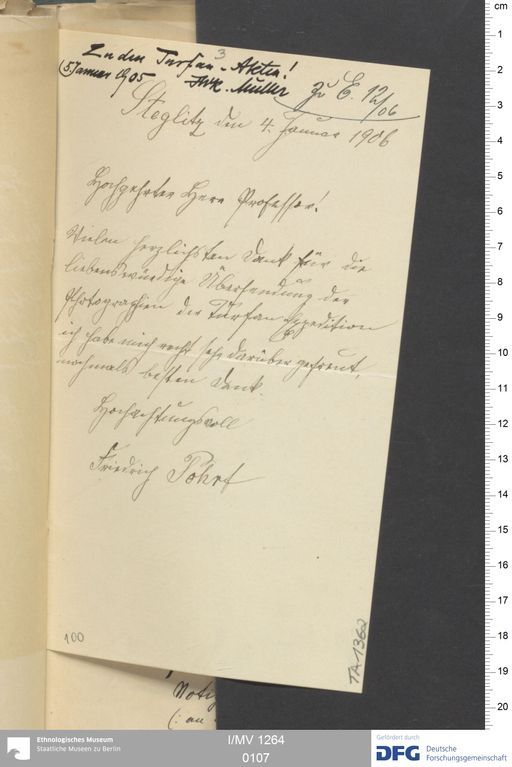 3
Zu den Turfan-Akten!
(5. Januar 1905 FWK. Müller
Zu E. 12/06
Steglitz den 4. Januar 1906
Hochgehrter Herr Professor!
Vielen herzlichsten Dank für die
liebenswürdige Übersendung der
Photographien der Turfan Expedition
ich habe mich recht sehr darüber gefreut,
nochmals besten Dank.
Hochachtungsvoll
Friedrich
100
TA 1362
Notiz
(: an
cm
1
2
3
4
5
6
7
8
9
10
11
12
13
14
15
16
17
18
19
20
Ethnologisches Museum
Staatliche Museen zu Berlin
I/MV 1264
0107
Gefördert durch
DFG Deutsche
Forschungsgemeinschaft